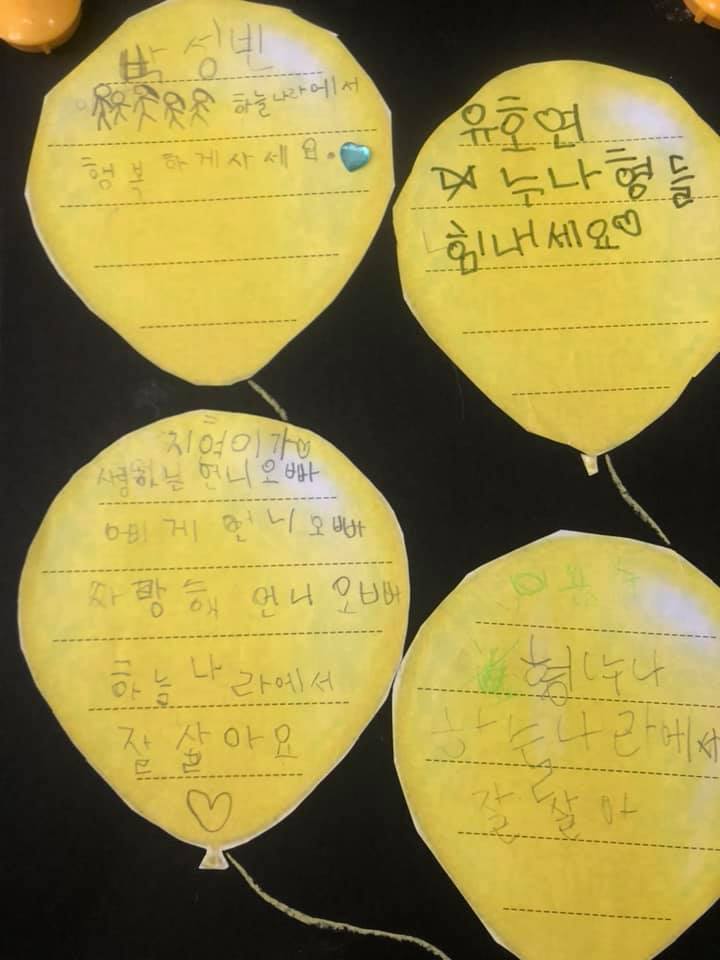 박성빈
하늘나라에서
행복하게사세요.
유호연
누나형들
힘내세요♡
지혁이가♡
사랑하는 언니오빠
에게 언니오빠
사랑해 언니오빠
하늘나라에서
잘살아요
♡
형누나
하늘나라에서
잘살아